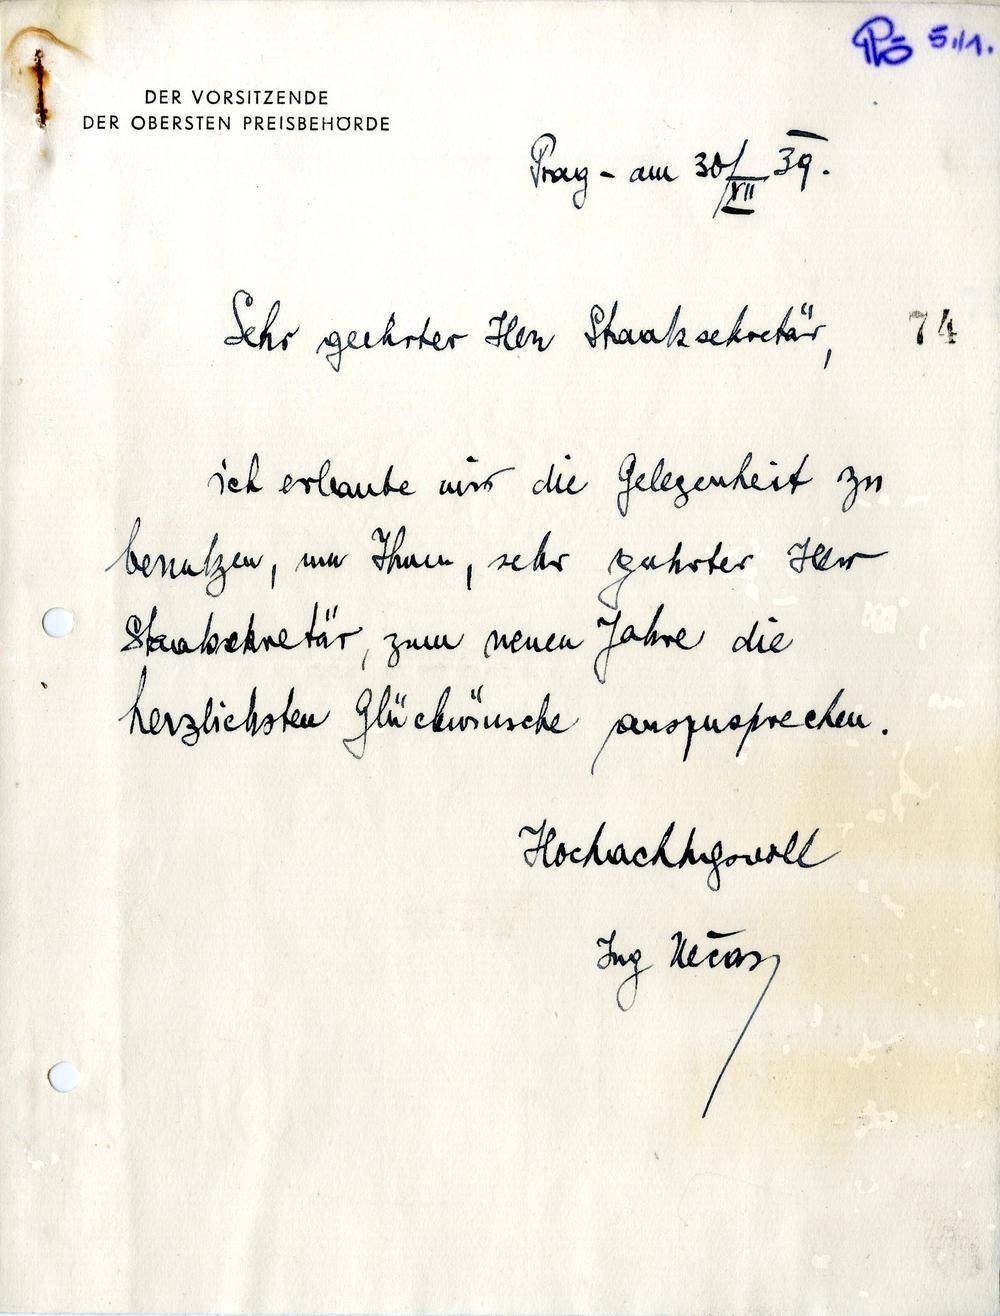 5./1.
DER VORSITZENDE
DER OBERSTEN PREISBEHÖRDE
Prag - am 30/XII 39.
Sehr geehrter Herr Staatssekretär,
74
ich erlaube mir die Gelegenheit zu
benutzen, um Ihnen, sehr geehrter Herr
Staatssekretär, zum neuen Jahre die
herzlichsten Glückwünsche auszusprechen.
Hochachtungsvoll
Ing Nečas